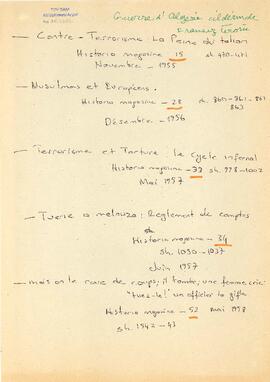 Guerre d'Algérie
— Contre - Terrorisme La Peine du talion
Historia magazine 15 sh 470-471
Novembre - 1955
— Musulmans et Européens.
Historia magazine - 28 sh. 860-861-861
863
Désembre - 1956
— Terrorisme et Torture : le cycle infernal
Historia magazine - 33 sh. 978-1002
Mai 1957
— Tuerie a melouza: Reglement de comptes
sh
Historia magazine - 34
sh. 1030 - 1037
Juin 1957
— mais on le roue de coups; il tombe; une femme crie:
"tuez-le!" un officier la gifle
Historia magazine - 52 mai 1958
sh. 1542 - 43